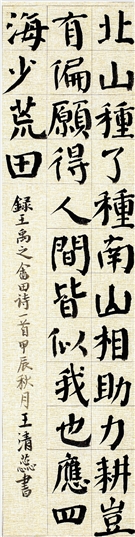 北山種了種南山相助力耕豈
有偏願得人間皆似我也應四
海少荒田
録王禹之畲田诗一首甲辰秋月王清蕊書